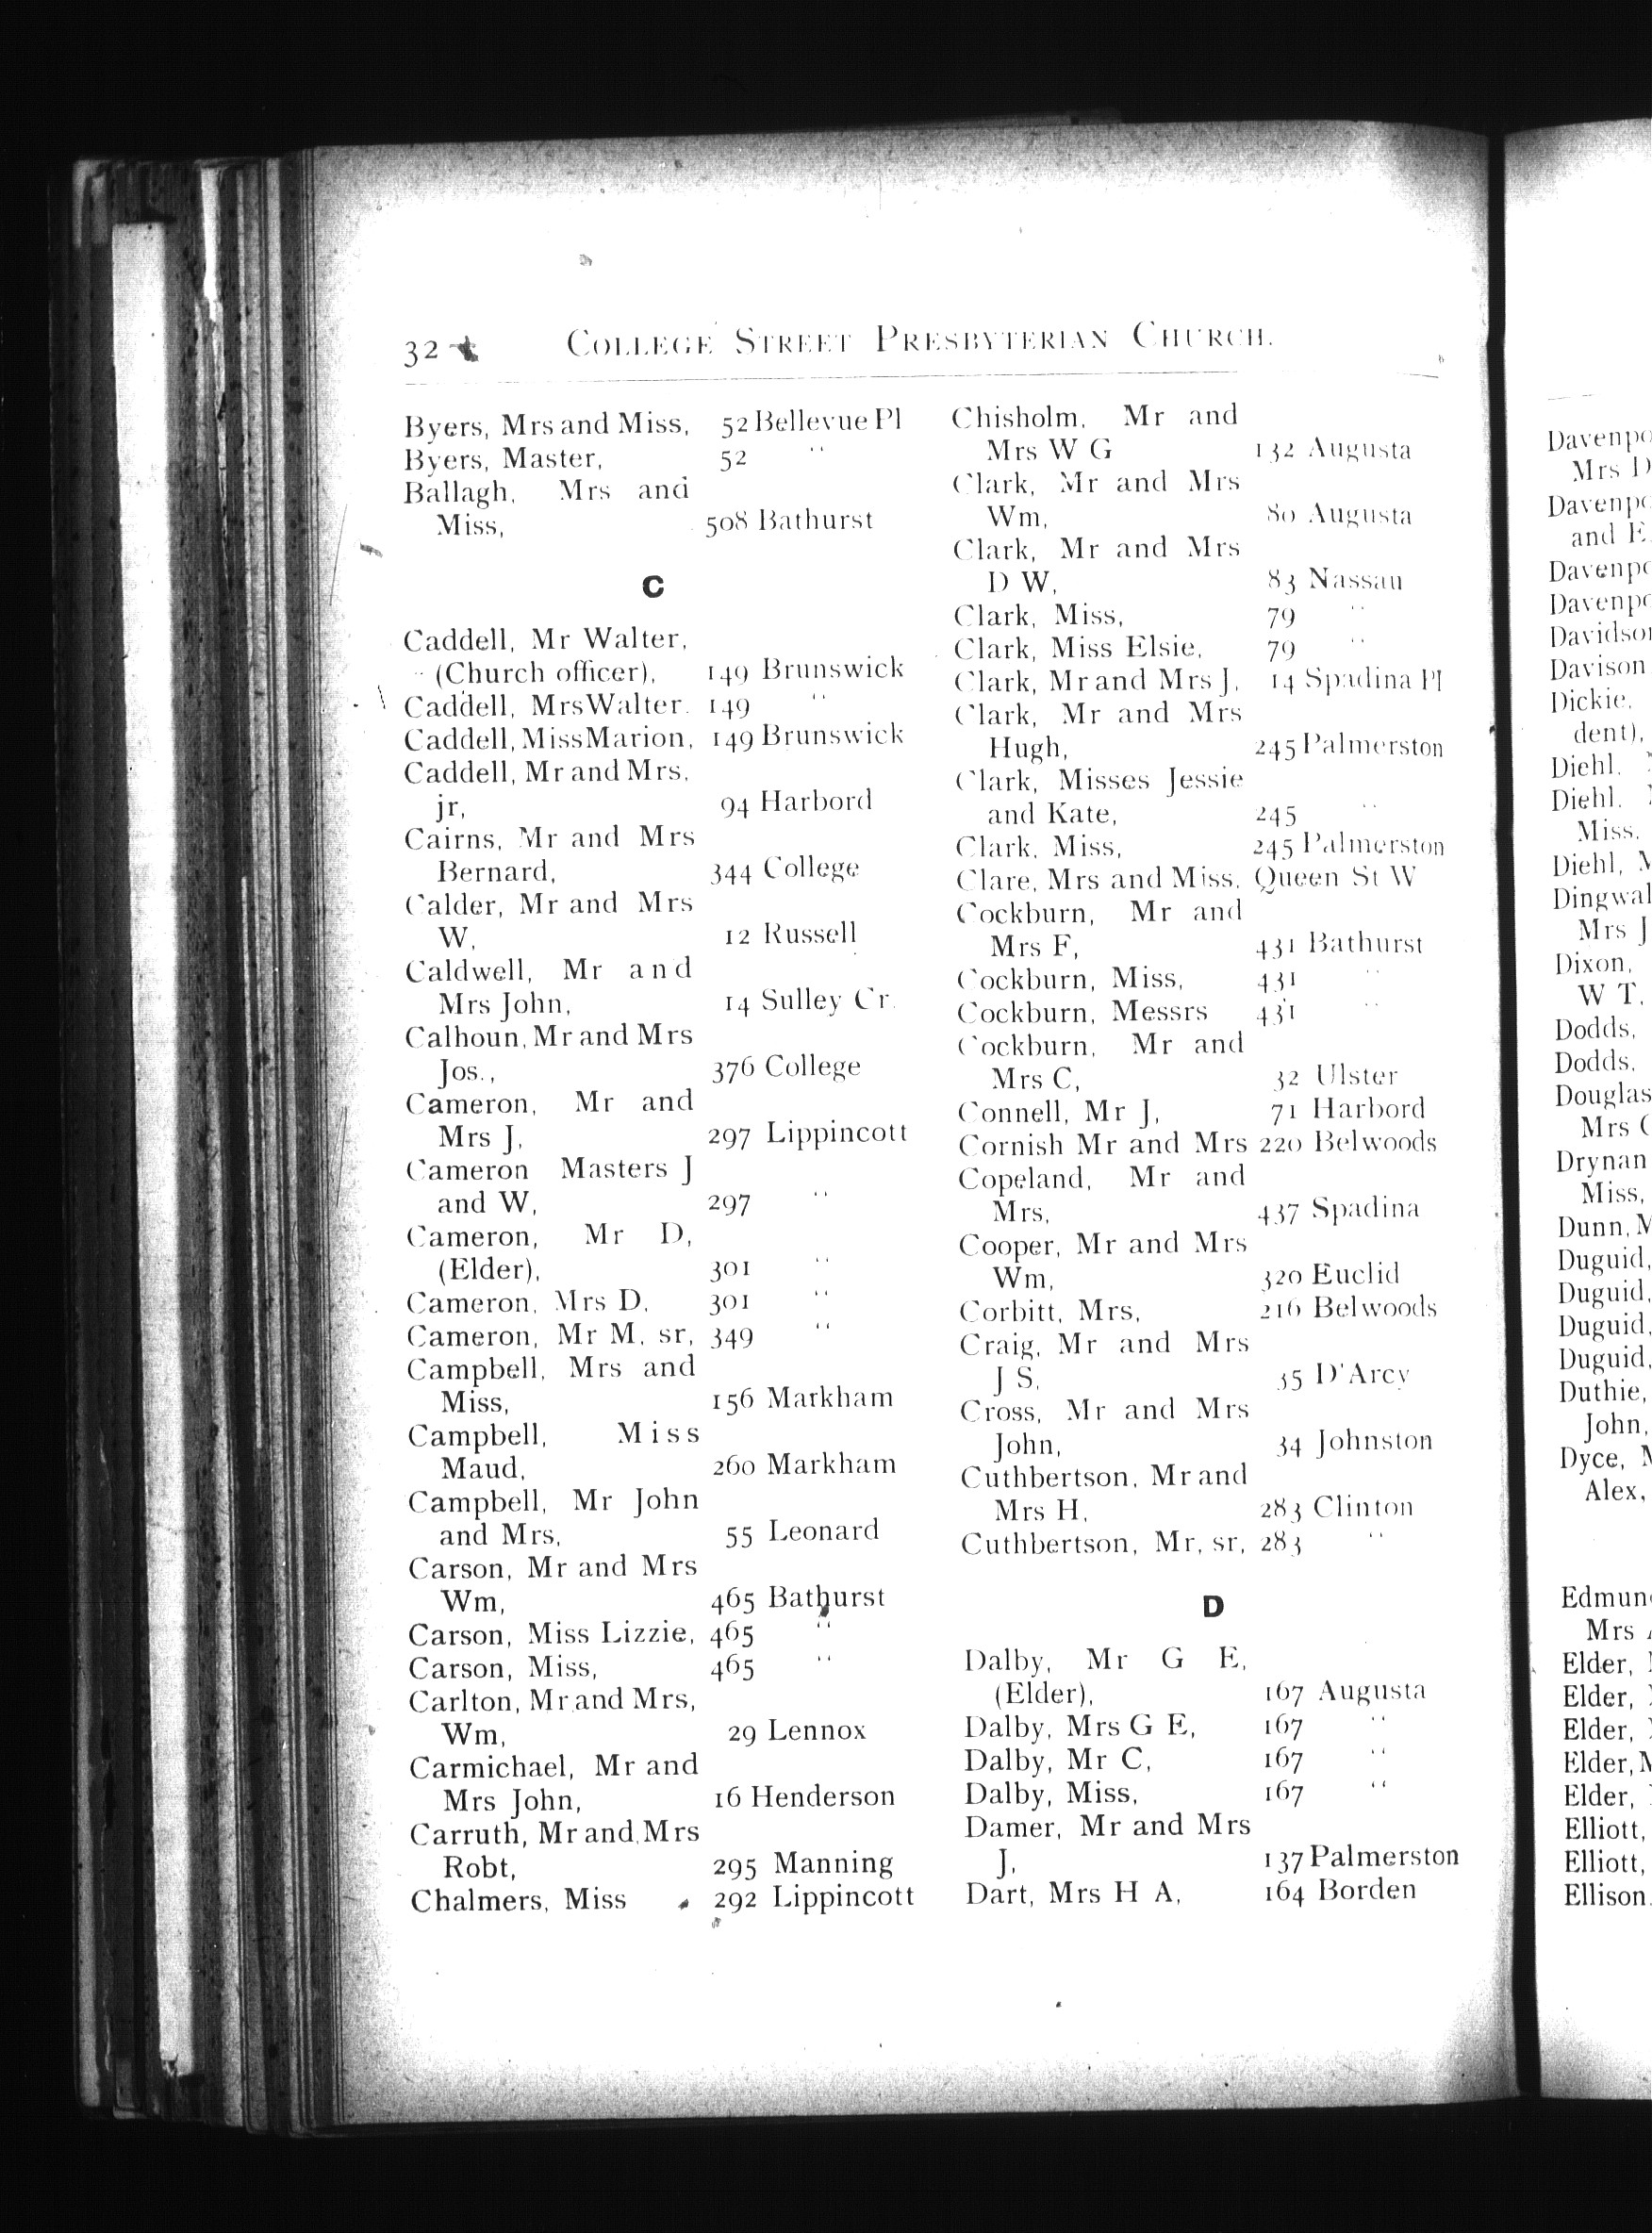 32 COLLEGE STREET PRESBYTERIAN CHURCH.
Byers, Mrs and Miss, 52 Bellevue Pl
Byers, Master, 52 "
Ballagh, Mrs and
Miss, 508 Bathurst
C
Caddell, Mr Walter,
(Church officer), 149 Brunswick
Caddell, Mrs Walter. 149 "
Caddell, Miss Marion, 149 Brunswick
Caddell, Mr and Mrs,
jr, 94 Harbord
Cairns, Mr and Mrs
Bernard, 344 College
Calder, Mr and Mrs
W, 12 Russell
Caldwell, Mr and
Mrs John, 14 Sulley Cr.
Calhoun, Mr and Mrs
Jos., 376 College
Cameron, Mr and
Mrs J, 297 Lippincott
Cameron Masters J
and W, 297 "
Cameron, Mr D,
(Elder), 301 "
Cameron, Mrs D, 301 "
Cameron, Mr M, sr, 349 "
Campbell, Mrs and
Miss, 156 Markham
Campbell, Miss
Maud, 260 Markham
Campbell, Mr John
and Mrs, 55 Leonard
Carson, Mr and Mrs
Wm, 465 Bathurst
Carson, Miss Lizzie, 465 "
Carson, Miss, 465 "
Carlton, Mr and Mrs,
Wm, 29 Lennox
Carmichael, Mr and
Mrs John, 16 Henderson
Carruth, Mr and Mrs
Robt, 295 Manning
Chalmers, Miss 292 Lippincott
Chisholm, Mr and
Mrs W G 132 Augusta
Clark, Mr and Mrs
Wm, 80 Augusta
Clark, Mr and Mrs
D W, 83 Nassau
Clark, Miss, 79 "
Clark, Miss Elsie, 79 "
Clark, Mr and Mrs J, 14 Spadina Pl
Clark, Mr and Mrs
Hugh, 245 Palmerston
Clark, Misses Jessie
and Kate, 245 "
Clark, Miss, 245 Palmerston
Clare, Mrs and Miss, Queen St W
Cockburn, Mr and
Mrs F, 431 Bathurst
Cockburn, Miss, 431 "
Cockburn, Messrs 431 "
Cockburn, Mr and
Mrs C, 32 Ulster
Connell, Mr J, 71 Harbord
Cornish Mr and Mrs 220 Belwoods
Copeland, Mr and
Mrs, 437 Spadina
Cooper, Mr and Mrs
Wm, 320 Euclid
Corbitt, Mrs, 216 Belwoods
Craig, Mr and Mrs
J S, 35 D'Arcy
Cross, Mr and Mrs
John, 34 Johnston
Cuthbertson, Mr and
Mrs H, 283 Clinton
Cuthbertson, Mr, sr, 283 "
D
Dalby, Mr G E,
(Elder), 167 Augusta
Dalby, Mrs G E, 167 "
Dalby, Mr C, 167 "
Dalby, Miss, 167 "
Damer, Mr and Mrs
J, 137 Palmerston
Dart, Mrs H A, 164 Borden
Mrs
and
Davison
Dickie,
dent),
Diehl,
Diehl,
Miss,
Diehl,
Mrs J
Dixon,
W T,
Dodds,
Dodds,
Douglas
Mrs
Drynan
Miss,
Dunn,
Duguid,
Duguid,
Duguid,
Duguid,
Duthie,
John,
Dyce,
Alex,
Mrs
Elder,
Elder,
Elder,
Elder,
Elder,
Elliott,
Elliott,
Ellison